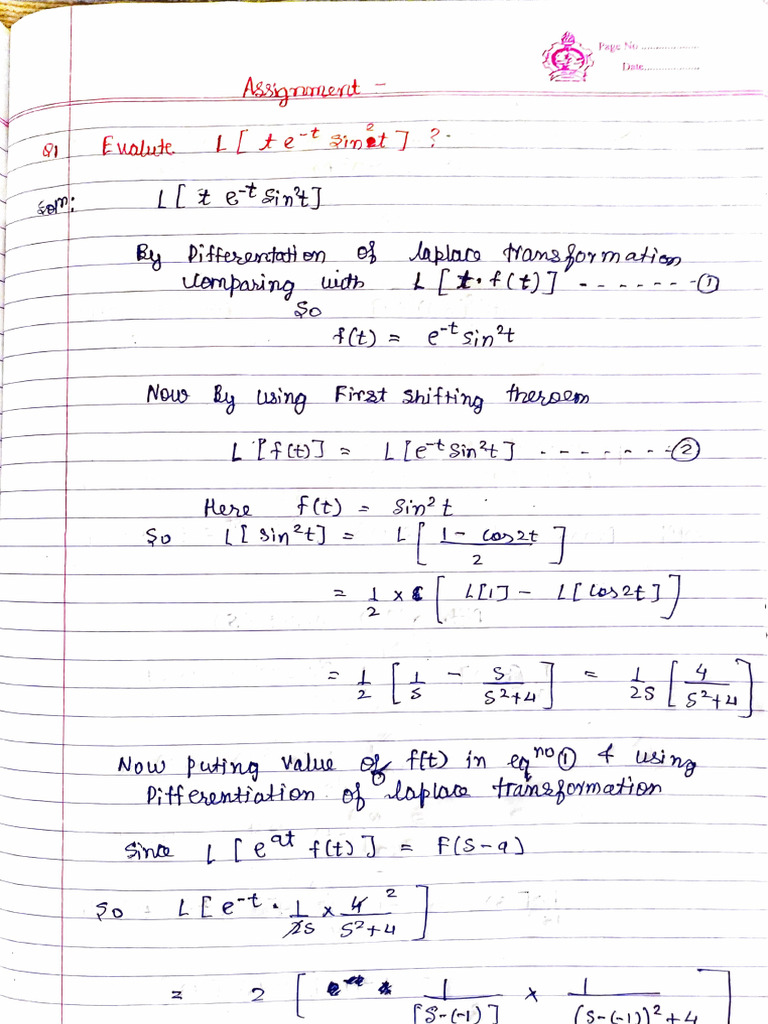 Page No ....................
Date....................
Assignment -
Q1 Evalute L[ t e^-t sin^2 t ] ?.
Som: L[ t e^-t sin^2t]
By Differentation of laplace transformation
Comparing with L [ t. f(t) ] - - - - - - - ①
So
f(t) = e^-t sin^2t
Now By using First shifting theroem
L [f(t)] = L[e^-t sin^2t] - - - - - - - ②
Here f(t) = sin^2 t
So L[ sin^2t] = L [ (1 - cos2t)/2 ]
= 1/2 x [ L[1] - L[cos2t] ]
= 1/2 [ 1/s - s/(s^2+4) ] = 1/2s [ 4/(s^2+4) ]
Now puting value of f(t) in eq^no ① & using
Differentiation of laplace transformation
Since L [ e^at f(t) ] = F(s-a)
So L[ e^-t . 1/2s x 4/(s^2+4) 2 ]
= 2 [ 1/[s-(-1)] x 1/((s-(-1))^2+4) ]